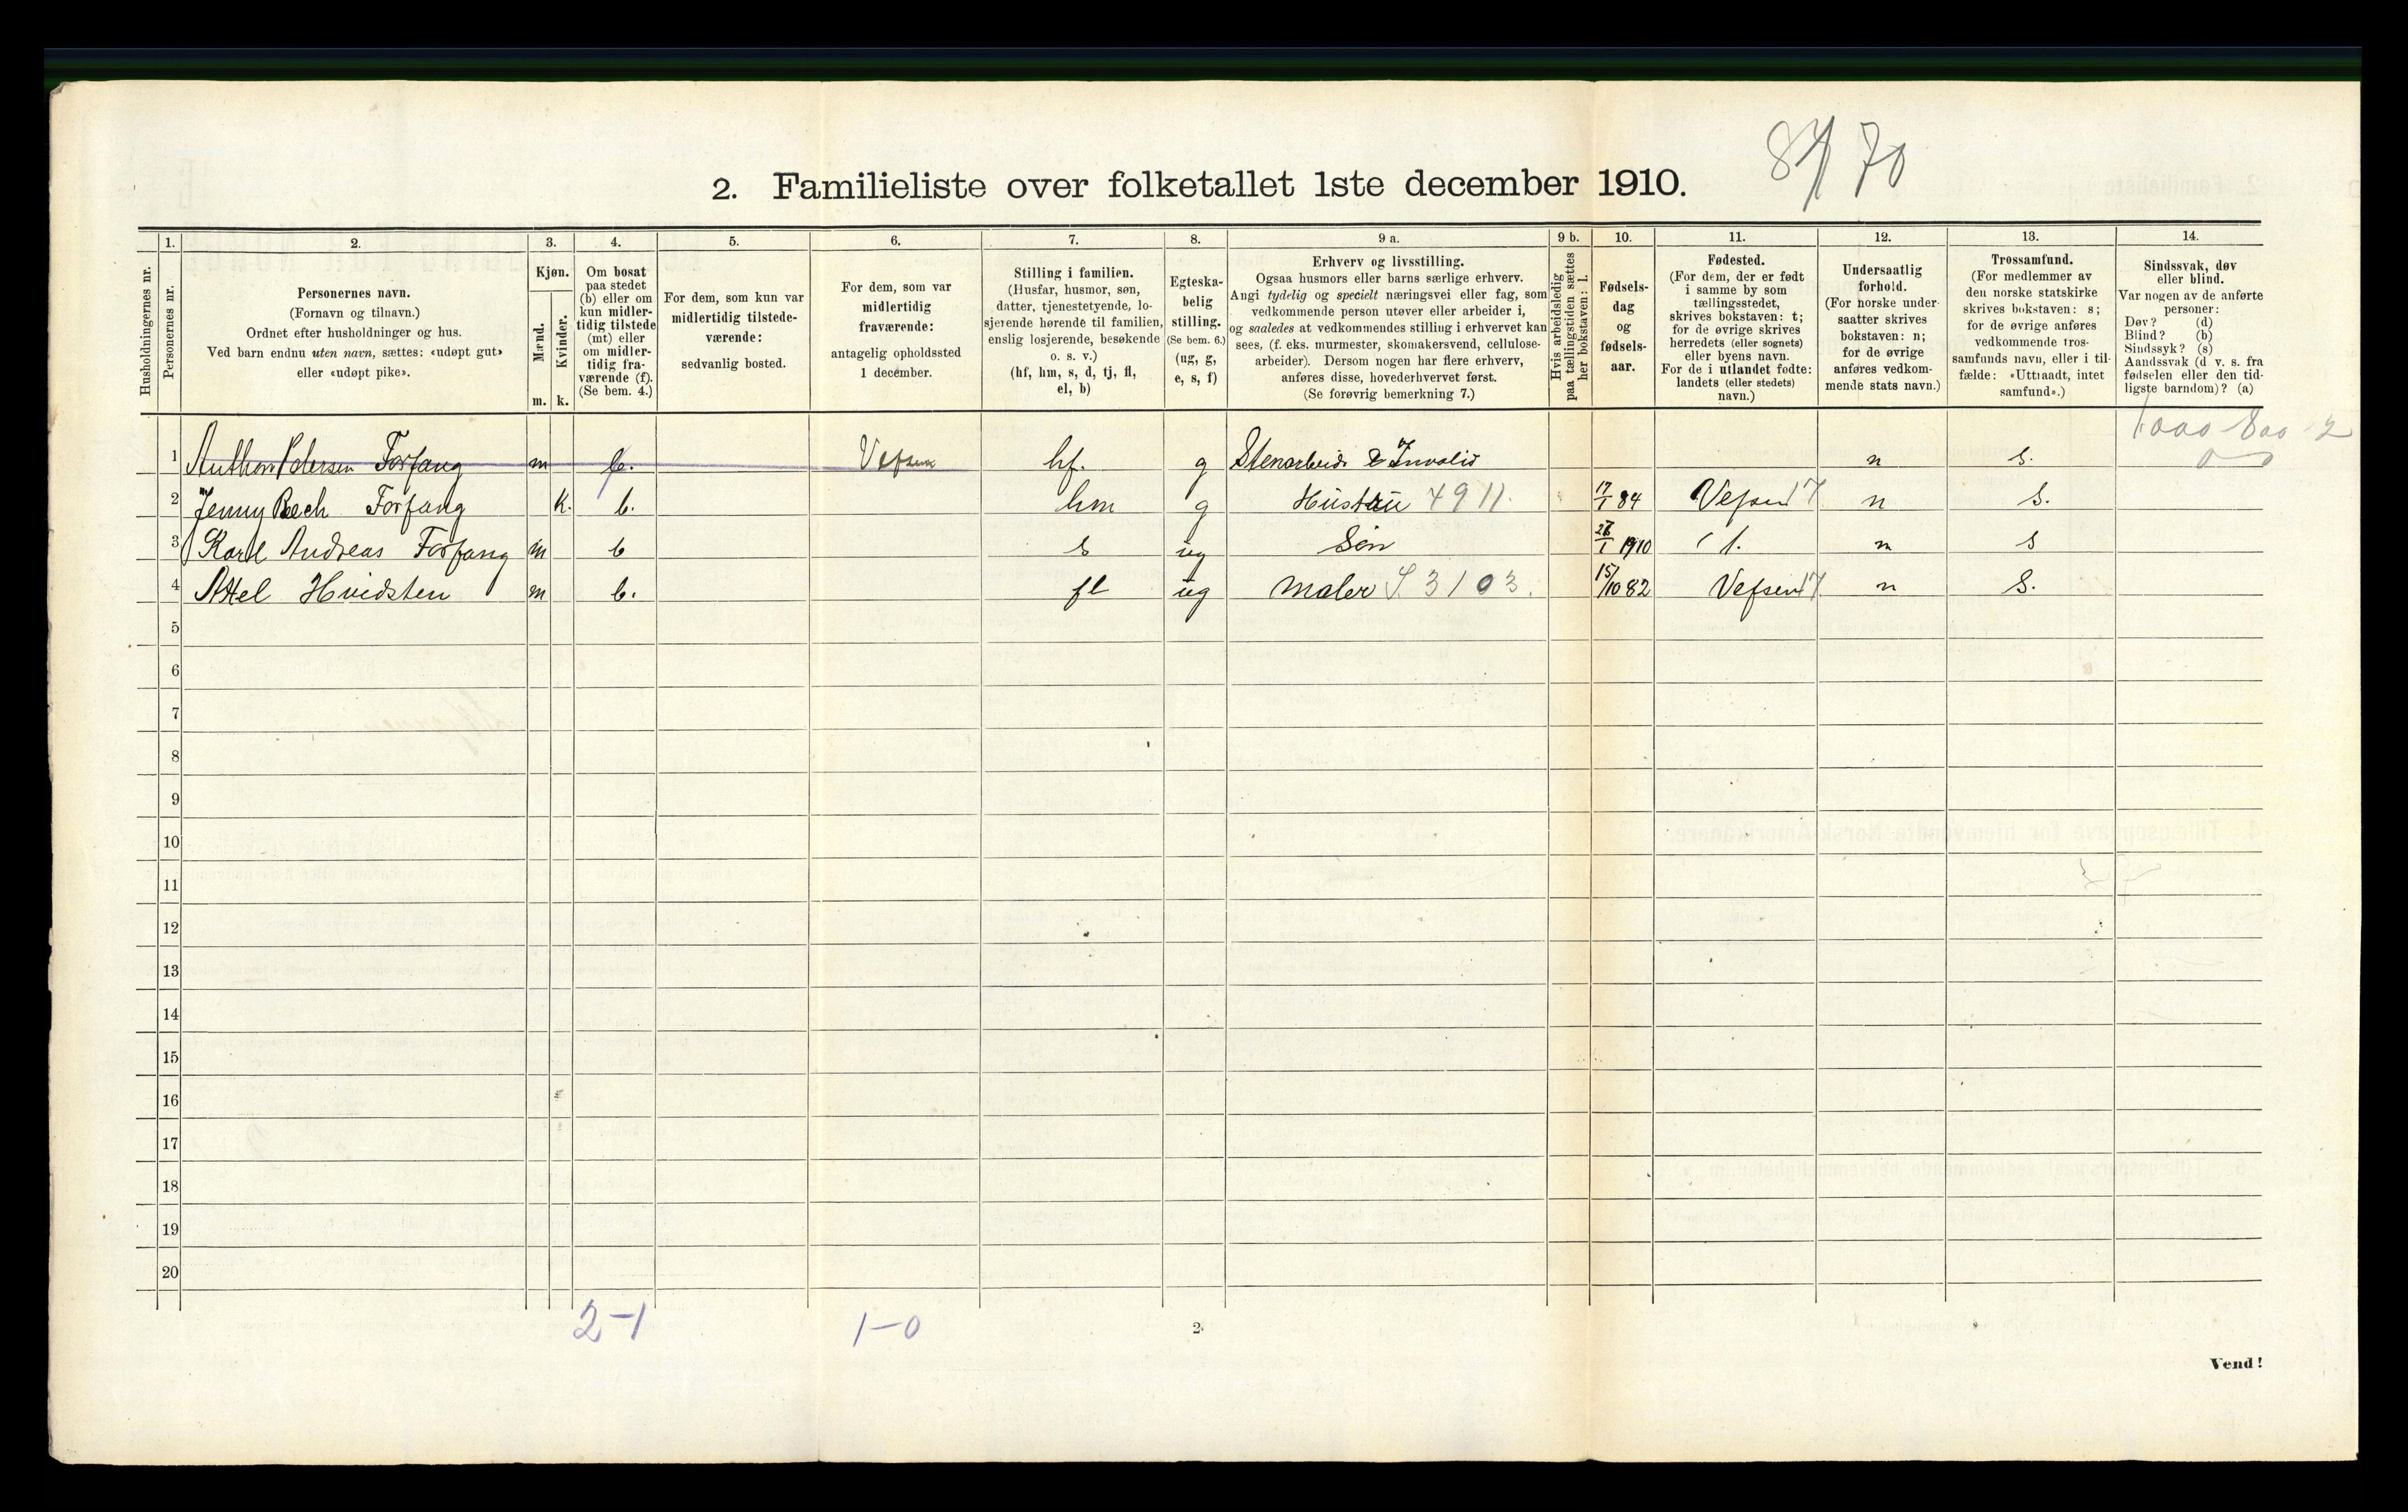 84/70
2. Familieliste over folketallet 1ste december 1910.
Husholdningernes nr.
1. Personernes nr.
2. Personernes navn. (Fornavn og tilnavn.) Ordnet efter husholdninger og hus. Ved barn endnu uten navn, sættes: «udøpt gut» eller «udøpt pike».
3. Kjøn. Mænd. m. Kvinder. k.
4. Om bosat paa stedet (b) eller om kun midlertidig tilstede (mt) eller om midlertidig fraværende (f). (Se bem. 4.)
5. For dem, som kun var midlertidig tilstedeværende: sedvanlig bosted.
6. For dem, som var midlertidig fraværende: antagelig opholdssted 1 december.
7. Stilling i familien. (Husfar, husmor, søn, datter, tjenestetyende, losjerende hørende til familien, enslig losjerende, besøkende o. s. v.) (hf, hm, s, d, tj, fl, el, b)
8. Egteskabelig stilling. (Se bem. 6.) (ug, g, e, s, f)
9 a. Erhverv og livsstilling. Ogsaa husmors eller barns særlige erhverv. Angi tydelig og specielt næringsvei eller fag, som vedkommende person utøver eller arbeider i, og saaledes at vedkommendes stilling i erhvervet kan sees, (f. eks. murmester, skomakersvend, cellulosearbeider). Dersom nogen har flere erhverv, anføres disse, hovederhvervet først. (Se forøvrig bemerkning 7.)
9 b. Hvis arbeidsledig paa tællingstiden sættes her bokstaven: l.
10. Fødselsdag og fødselsaar.
11. Fødested. (For dem, der er født i samme by som tællingsstedet, skrives bokstaven: t; for de øvrige skrives herredets (eller sognets) eller byens navn. For de i utlandet fødte: landets (eller stedets) navn.)
12. Undersaatlig forhold. (For norske undersaatter skrives bokstaven: n; for de øvrige anføres vedkommende stats navn.)
13. Trossamfund. (For medlemmer av den norske statskirke skrives bokstaven: s; for de øvrige anføres vedkommende trossamfunds navn, eller i tilfælde: «Uttraadt, intet samfund».)
14. Sindssvak, døv eller blind. Var nogen av de anførte personer: Døv? (d) Blind? (b) Sindssyk? (s) Aandssvak (d v. s. fra fødselen eller den tidligste barndom)? (a)
1000 800 2
1 Anthon Pdersen Forfang m b. Vefsen hf. g Stenarbeid & Invalid n s. 0
2 Jenny Bech Forfang K. b. hm g Hustru 4911. 17/1 84 Vefsen 17 n S.
3 Karl Andreas Forfang m b s ug Sön 1/1910 t. n S
4 Axel Hvidsten m b. fl ug Maler S 3103. 15/10 82 Vefsen 17 n S.
5
6
7
8
9
10
11
12
13
14
15
16
17
18
19
20
2-1 1-0
2
Vend!